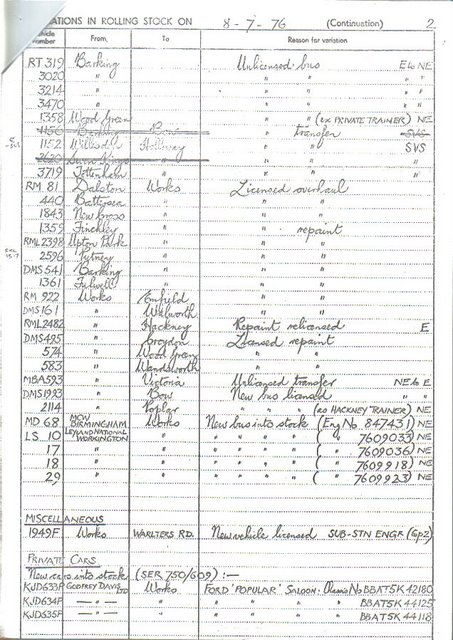 ATIONS IN ROLLING STOCK ON 8-7-76 (Continuation) 2
Vehicle Number From, To Reason for variation
RT 319 Barking Unlicensed bus E to NE
3020 " " " " "
3214 " " " " "
3470 " " " " "
1358 Wood Green " " (ex PRIVATE TRAINER) NE
1156 Barking Bow " transfer SVS
1152 Willesden Holloway " " SVS
2629
3719 Tottenham " " "
RM 81 Dalston Works Licensed overhaul
440 Battersea " " "
1843 New Cross " " "
1359 Finchley " " repaint
RML 2398 Upton Park " "
2596 Putney " "
DMS 541 Barking " "
1361 Fulwell " "
RM 922 Works Enfield "
DMS 161 " Walworth "
RML 2482 " Hackney Repaint relicensed E
DMS 495 " Croydon Licensed repaint
574 " Wood Green " "
583 " Wandsworth " "
MBA 593 " Victoria Unlicensed transfer NE to E
DMS 1933 " Bow New bus licensed " "
2114 " Poplar " " (ex HACKNEY TRAINER) NE
MD 68 MCW BIRMINGHAM Works New bus into stock (Eng No 847431) NE
LS 10 LEYLAND NATIONAL WORKINGTON " " " " " ( " 7609033) NE
17 " " " " " " ( " 7609036) NE
18 " " " " " " ( " 7609918) NE
29 " " " " " " ( " 7609923) NE
MISCELLANEOUS
1949F Works WARLTERS RD. New vehicle licensed SUB-STN ENGR (Gp2)
PRIVATE CARS
New cars into stock (SER 750/609) :—
KJD633P GODFREY DAVIS LTD Works FORD 'POPULAR' SALOON: Chassis No BBAT5K 42180
KJD634P — " — " " " " BBAT5K 44125
KJD635P — " — " " " " BBAT5K 44118